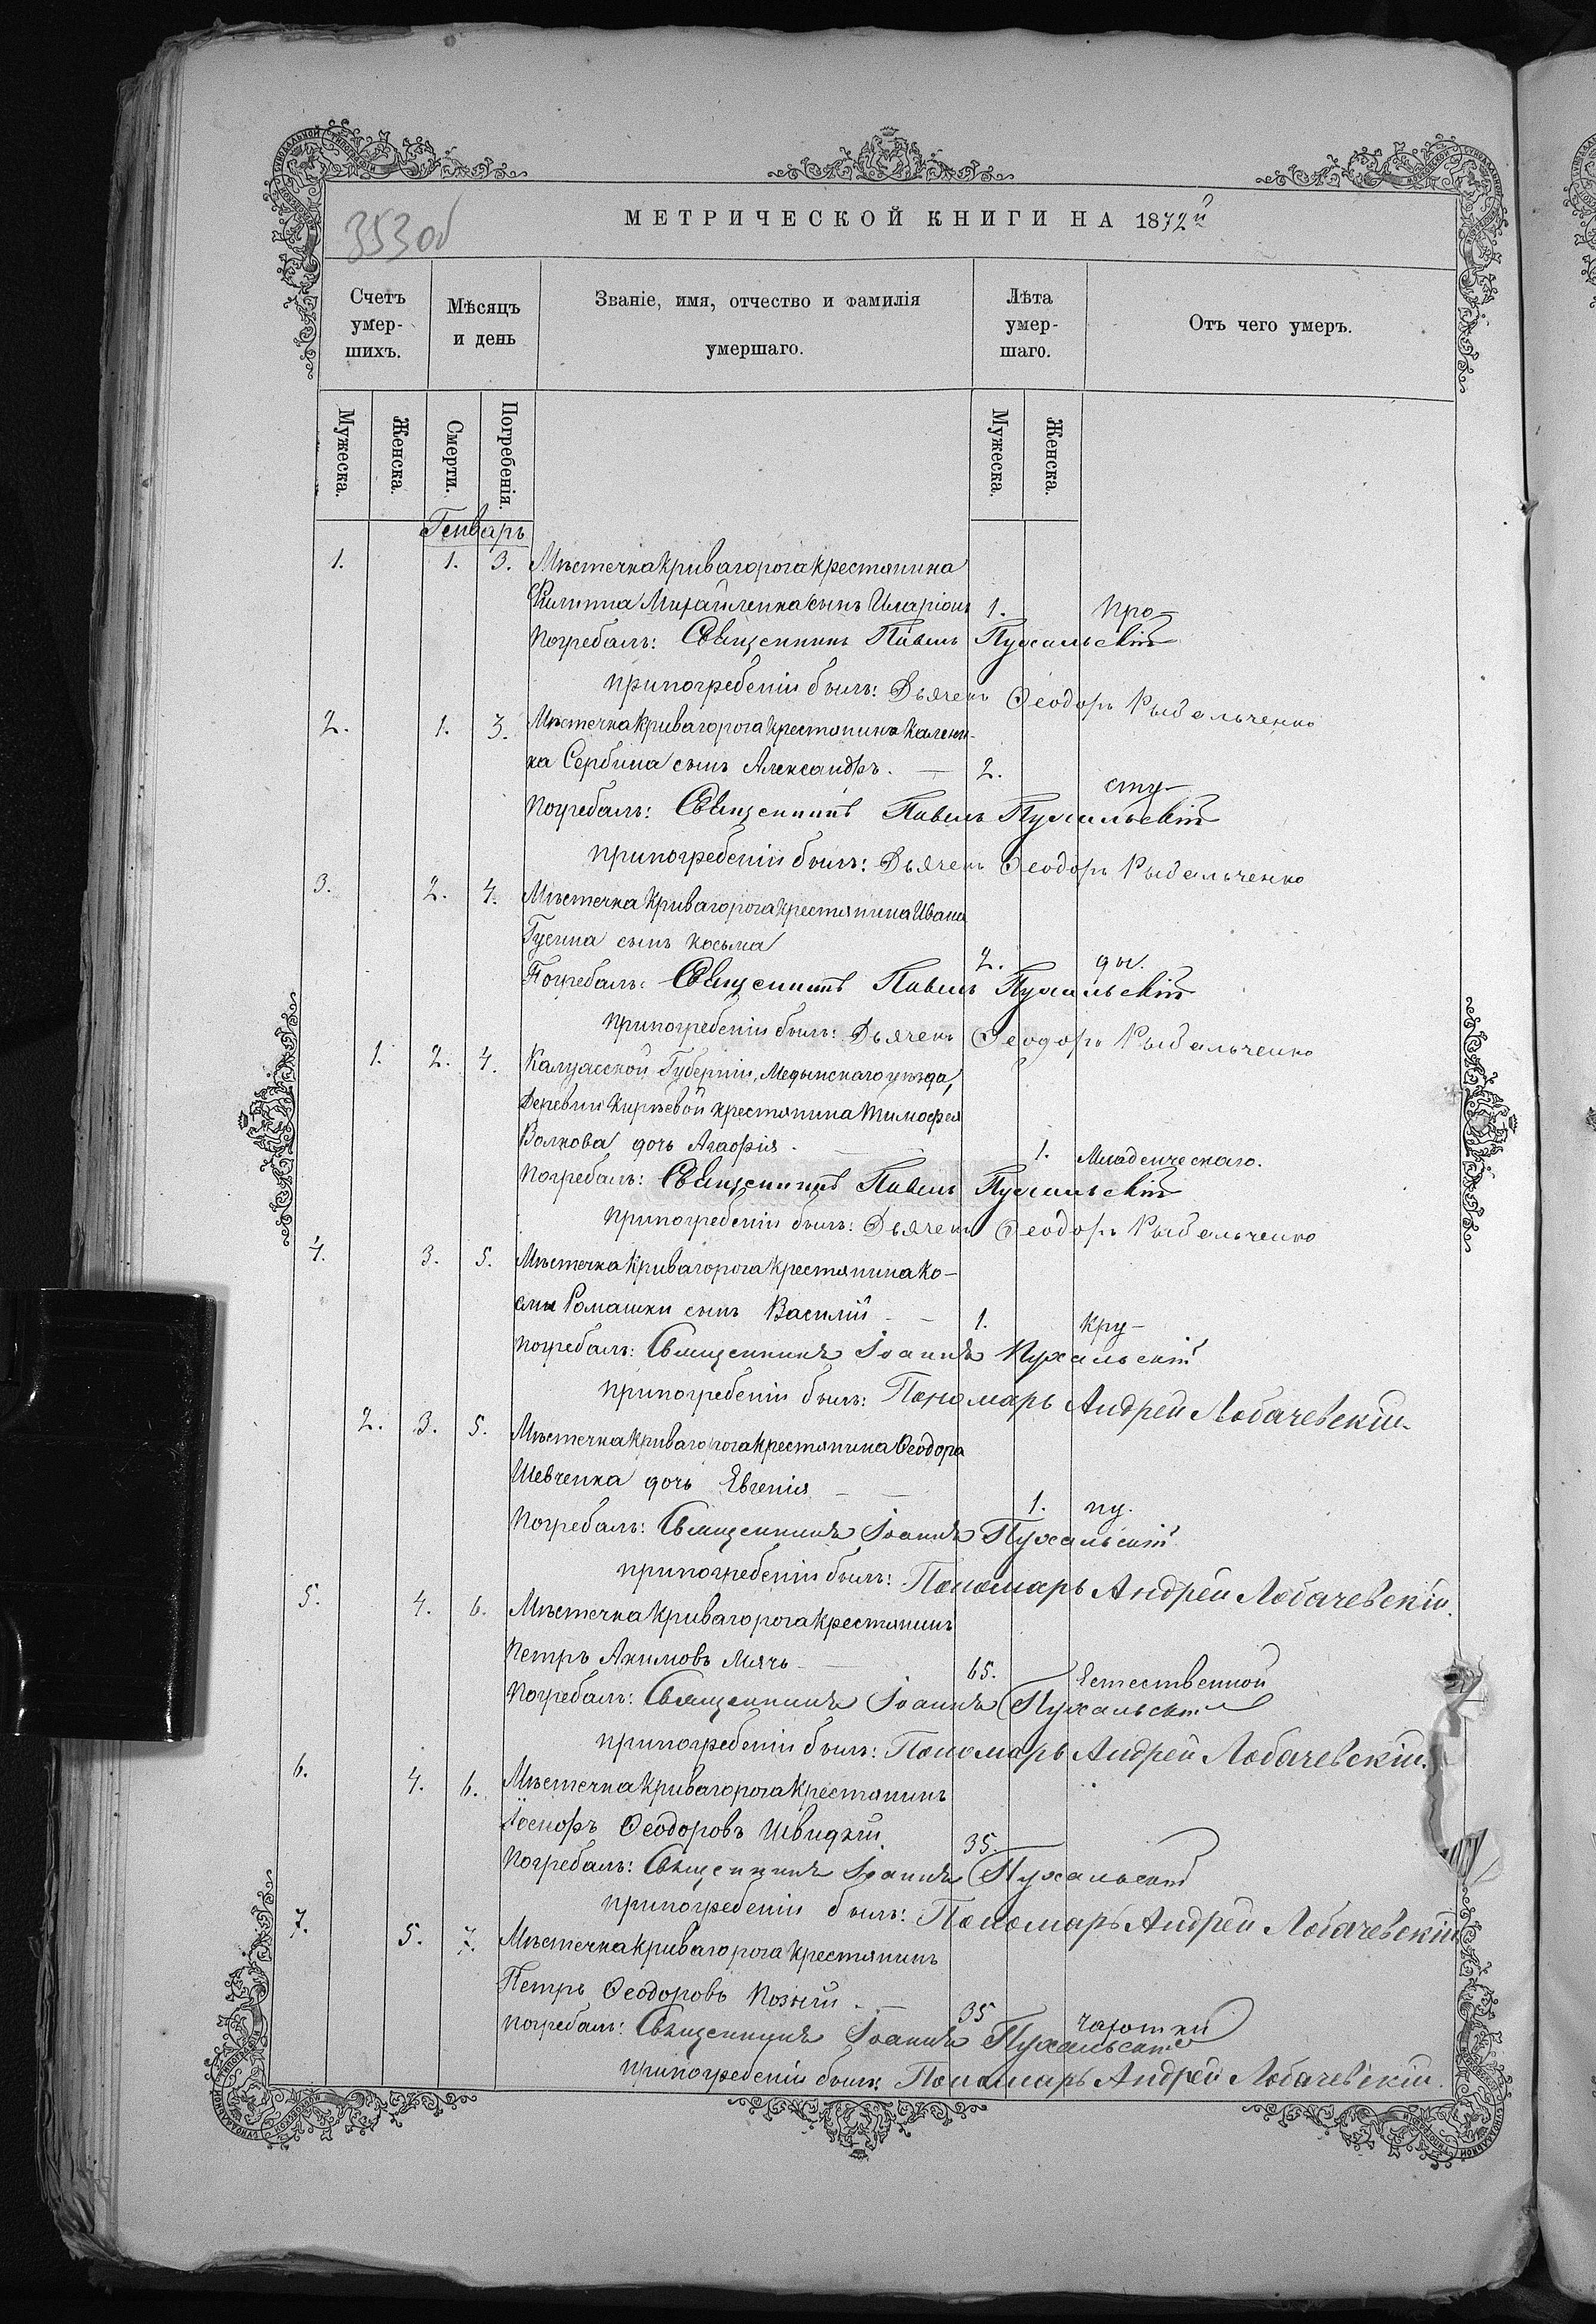 353 об
МЕТРИЧЕСКОЙ КНИГИ НА 1872й
Счетъ умер-шихъ.
Мѣсяцъ и день
Званіе, имя, отчество и фамилія умершаго.
Лѣта умер-шаго.
Отъ чего умеръ.
Мужеска. Женска. Смерти. Погребенія. Мужеска. Женска.
Генварь
1. 1. 3. Мѣстечка Криваго рога крестянина
Филиппа Михайленка сынъ Иларіонъ 1. про-
Погребалъ: Священникъ Павелъ Пухальскій
При погребеніи былъ: Дьячекъ Ѳеодоръ Рыбальченко
2. 1. 3. Мѣстечка Криваго рога крестянина Калени-
ка Сербина сынъ Александръ. — 2. сту-
Погребалъ: Священникъ Павелъ Пухальскій
При погребеніи былъ: Дьячекъ Ѳеодоръ Рыбальченко
3. 2. 4. Мѣстечка Криваго рога крестянина Ивана
Гусина сынъ Косьма 2. ды.
Погребалъ: Священникъ Павелъ Пухальскій
При погребеніи былъ: Дьячекъ Ѳеодоръ Рыбальченко
1. 2. 4. Калужской Губерніи, Медынскаго уѣзда,
Деревни крестянина Тимофея
Волкова дочь Агафія. 1. Младенческаго.
Погребалъ: Священникъ Павелъ Пухальскій
При погребеніи былъ: Дьячекъ Ѳеодоръ Рыбальченко
4. 3. 5. Мѣстечка Криваго рога крестянина Ко-
смы Ромашки сынъ Василій — 1. кру-
Погребалъ: Священникъ Іоаннъ Пухальскій
При погребеніи былъ: Пономарь Андрей Лобачевскій.
2. 3. 5. Мѣстечка Криваго рога крестянина Ѳеодора
Шевченка дочь Евгенія — 1. пу.
Погребалъ: Священникъ Іоаннъ Пухальскій
При погребеніи былъ: Пономарь Андрей Лобачевскій.
5. 4. 6. Мѣстечка Криваго рога крестянинъ
Петръ Акимовъ Мячъ — 65. Естественной
Погребалъ: Священникъ Іоаннъ Пухальскій
При погребеніи былъ: Пономарь Андрей Лобачевскій.
6. 4. 6. Мѣстечка Криваго рога крестянинъ
Іосифъ Ѳеодоровъ Швидкій. 35.
Погребалъ: Священникъ Іоаннъ Пухальскій
При погребеніи былъ: Пономарь Андрей Лобачевскій
7. 5. 7. Мѣстечка Криваго рога крестянинъ
Петръ Ѳеодоровъ Козый. — 35 чахотки
Погребалъ: Священникъ Іоаннъ Пухальскій
При погребеніи былъ: Пономарь Андрей Лобачевскій.